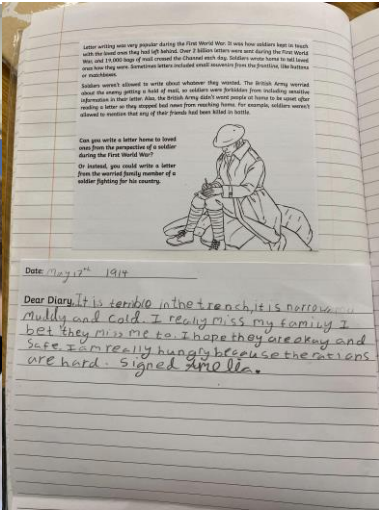 Letter writing was very popular during the First World War. It was how soldiers kept in touch
with the loved ones they had left behind. Over 2 billion letters were sent during the First World
War, and 19,000 bags of mail crossed the Channel each day. Soldiers wrote home to tell loved
ones how they were. Sometimes letters included small souvenirs from the frontline, like buttons
or matchboxes.
Soldiers weren't allowed to write about whatever they wanted. The British Army worried
about the enemy getting a hold of mail, so soldiers were forbidden from including sensitive
information in their letter. Also, the British Army didn't want people at home to be upset after
reading a letter so they stopped bad news from reaching home. For example, soldiers weren't
allowed to mention any of their friends had been killed in battle.
Can you write a letter home to loved
ones from the perspective of a soldier
during the First World War?
Or instead, you could write a letter
from the worried family member of a
soldier fighting for his country.
Date: 1914
Dear Diary, It is terrible in the trench, it is narrow
muddy and cold. I really miss my family I
bet they miss me to. I hope they are okay and
safe. I am really hungry because the rations
are hard. Signed Amelia.